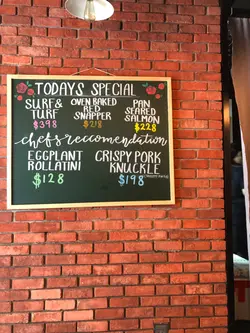 TODAYS SPECIAL
SURF& TURF
OVEN BAKED RED SNAPPER
PAN SEARED SALMON
$398
$218
$228
chef's reccomendation
EGGPLANT ROLLATINI
CRISPY PORK KNUCKLE
$128
$198